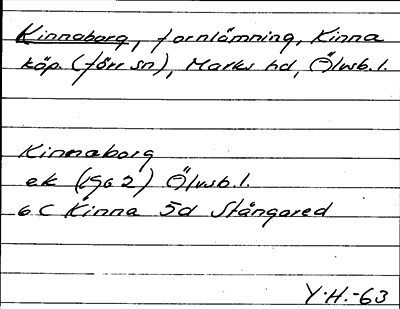 Kinnaborg, fornlämning, Kinna
köp. (förr sn), Marks hd, Älvsb.l.
Kinnaborg
ek (1962) Älvsb.l.
6C Kinna 5d Stångared
Y.H.-63